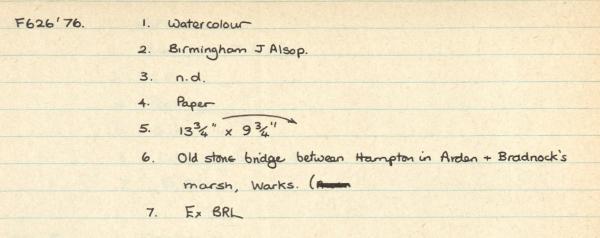 F626'76. 1. Watercolour
2. Birmingham J Alsop.
3. n.d.
4. Paper
5. 13 3/4" x 9 3/4"
6. Old stone bridge between Hampton in Arden + Bradnock's
marsh, Warks. (
7. Ex BRL